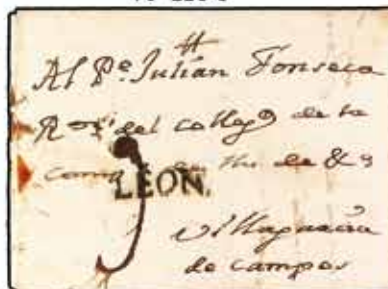 Al Pe. Julián Fonseca
Ror. del collego de la
comp de de
LEON.
Villagarcia
de campos